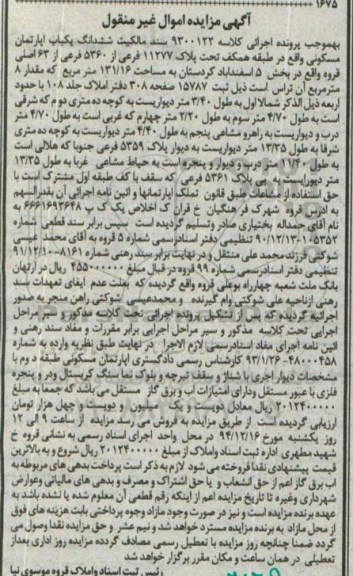 ۱۶۷۵
آگهی مزایده اموال غیر منقول
بهموجب پرونده اجرائی کلاسه ۹۳۰۰۱۲۲ سند مالکیت ششدانگ یکباب اپارتمان
مسکونی واقع در طبقه همکف تحت پلاک ۱۱۲۷۷ فرعی از ۵۳۶۰ فرعی از ۶۳ اصلی
قروه واقع در بخش ۵ اسفنداباد کردستان به مساحت ۱۳۱/۱۶ متر مربع که مقدار ۸
مترمربع آن تراس است ذیل ثبت ۱۵۷۸۷ صفحه ۳۰۸ دفتر املاک جلد ۱۰۸ با حدود
اربعه ذیل الذکر شمالا اول به طول ۳/۴۰ متر دیواریست به کوچه ده متری دوم که شرقی
است به طول ۴/۷۰ متر سوم به طول ۲/۲۰ متر چهارم که غربی است به طول ۴/۷۰ متر
درب و دیواریست به راهرو مشاعی پنجم به طول ۴/۴۰ متر دیواریست به کوچه ده متری
شرقا به طول ۱۳/۳۵ متر دیواریست به دیوار پلاک ۵۳۵۹ فرعی جنوبا که هلالی است
به طول ۱۷/۴۰ متر درب و دیوار و پنجره است به حیاط مشاعی غربا به طول ۱۳/۳۵
متر دیواریست به پی پلاک ۵۳۶۱ فرعی که سقف با کف طبقه اول مشترک است با
حق استفاده از مشاعات طبق قانون تملک اپارتمانها و ائین نامه اجرائی آن بقدرالسهم
به ادرس قروه شهرک فرهنگیان خ قران ک اخلاص یک ک پ ۶۶۶۱۶۹۳۶۴۸ به
نام آقای حمداله بختیاری صادر وتسلیم گردیده است سپس برابر سند قطعی شماره
۱۰۵۳۵۲-۹۰/۱۲/۱۳ تنظیمی دفتر اسنادرسمی شماره ۵ قروه به آقای محمد عیسی
شوکتی فرزند محمد علی منتقل و در نهایت برابر سند رهنی شماره ۸۱۶۱-۹۱/۱۲/۱۰
تنظیمی دفتر اسنادرسمی شماره ۹۹ قروه در قبال مبلغ ۴۵۵۰۰۰۰۰۰ ریال در ازتهان
بانک ملت شعبه چهارراه بوعلی قروه واقع گردیده که بعلت عدم ایفای تعهدات سند
رهنی ازناحیه علی شوکتی وام گیرنده و محمدعیسی شوکتی راهن منجر به صدور
اجرائیه گردیده که پس از تشکیل پرونده اجرائی تحت کلاسه مذکور و سیر مراحل
اجرایی تحت کلاسه مذکور و سیر مراحل اجرایی برابر مقررات و مفاد سند رهنی و
ائین نامه اجرای مفاد اسنادرسمی لازم الاجرا در نهایت طبق نظریه وارده به شماره
۴۸۰۰۰۴۵۸-۹۳/۱/۲۶ کارشناس رسمی دادگستری اپارتمان مسکونی طبقه دوم با
مشخصات دیوار اجری با شناژ و سقف تیرچه و بلوک نما سنگ کریستال ودر و پنجره
فلزی با عبور مستقل و دارای امتیازات آب و برق گاز مستقل می باشد که جمعا به مبلغ
۲۰۱۲۴۰۰۰۰۰ ریال معادل دویست و یک میلیون و دویست و چهل هزار تومان
ارزیابی گردیده است از طریق مزایده به فروش می رسد مزایده از ساعت ۹ الی ۱۲
روز یکشنبه مورخ ۹۴/۱۲/۱۶ در محل واحد اجرای اسناد رسمی به نشانی قروه خ
شهید مطهری اداره ثبت اسناد واملاک از مبلغ ۲۰۱۲۴۰۰۰۰۰ ریال شروع و به بالاترین
قیمت پیشنهادی نقدا فروخته می شود لازم به ذکر است پرداخت بدهی های مربوطه به
اب برق گاز اعم از حق انشعاب و یا حق اشتراک و مصرف و بدهی های مالیاتی وعوارض
شهرداری وغیره تا تاریخ مزایده اعم از اینکه رقم قطعی آن معلوم شده یا نشده باشد به
عهده برنده مزایده است و نیز در صورت وجود مازاد وجوه پرداختی بابت هزینه های فوق
از محل مازاد به برنده مزایده مسترد خواهد شد و نیم عشر و حق مزایده نقدا وصول می
گردد ضمنا چنانچه روز مزایده با تعطیل رسمی مصادف گردد مزایده روز اداری بعداز
تعطیلی در همان ساعت و مکان مقرر برگزار خواهد شد
رئیس ثبت اسناد واملاک قروه موسوی نیا